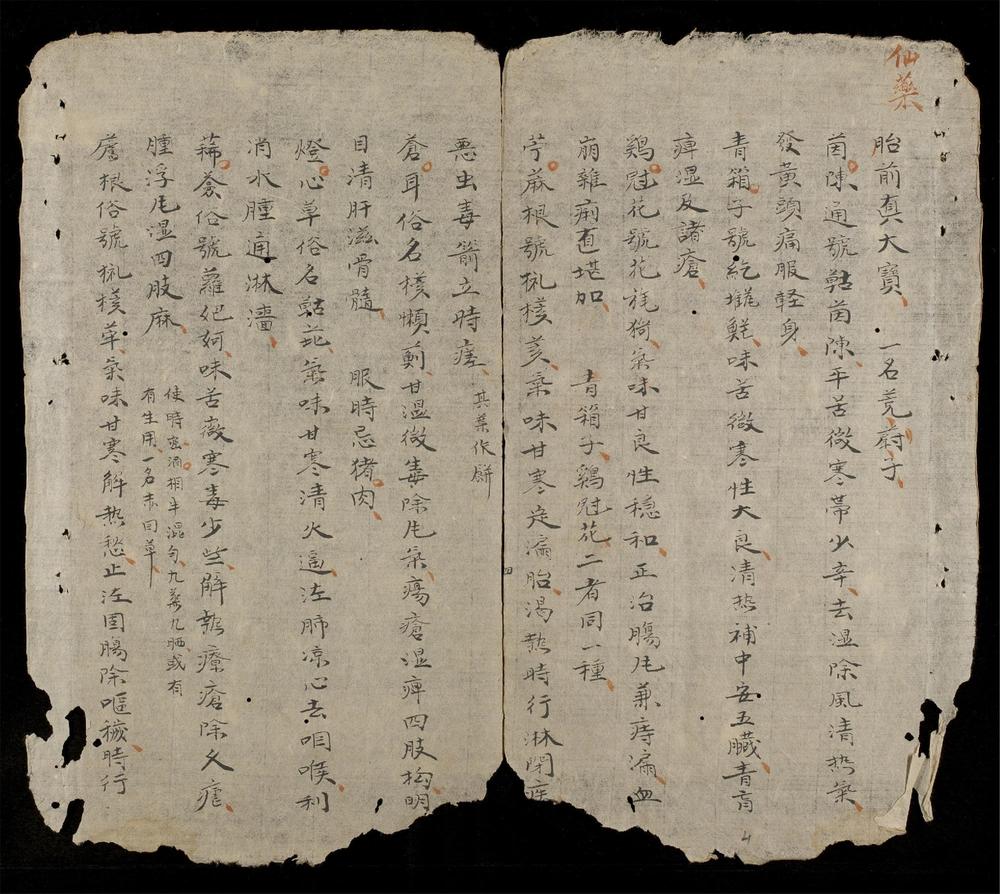 仙藥
胎前真大寶 一名茺蔚子
茵陳通號茵陳平苦微寒帶少辛去湿除風清热氣
發黃頭痛服軽身
青箱子號味苦微寒性大良清热補中安五臟青肓
痺湿及諸瘡
鷄冠花號花氣味甘良性穏和正治腸兼痔漏血
崩雜痢直堪加 青箱子鷄冠花二者同一種
苧蔴根號氣味甘寒定漏胎渴热時行淋閉疾
悪虫毒箭立時瘥 其葉作餅
蒼耳俗名甘温微毒除氣瘍瘡湿痺四肢拘明
目清肝滋骨髓 服時忌猪肉
燈心草俗名氣味甘寒清火遥法肺凉心去咽喉利
消水腫通淋濇
俗號蘿味苦微寒毒少些觧热療瘡除
腫浮湿四肢麻 使時蜜酒相半混匀九蒸九晒或有
有生用一名赤回草
根俗號氣味甘寒觧热愁止法固腸除嘔穢時行